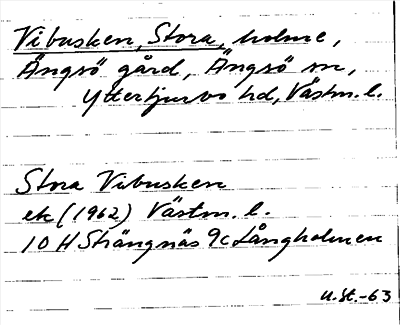 Vibusken, Stora, holme,
Ängsö gård, Ängsö sn,
Yttertjurbo hd, Västm. l.
Stora Vibusken
ek (1962) Västm. l.
10 H Strängnäs 9c Långholmen
U.St.-63